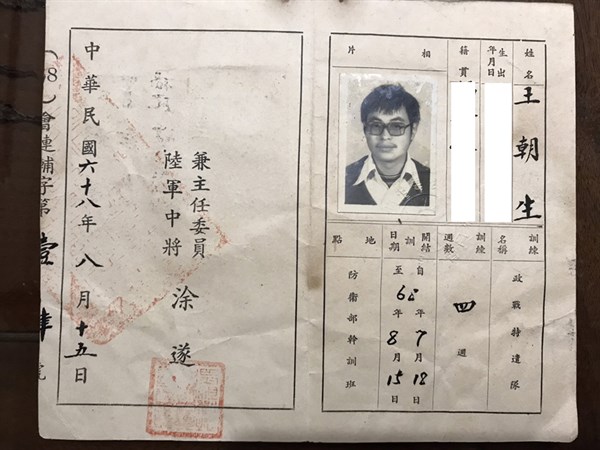 姓名 王朝生
出生年月日
籍貫
相片
訓練名稱 政戰特遣隊
訓練週數 四週
開結訓日期 自68年7月18日
至 年8月15日
地點 防衛部幹訓班
兼主任委員
陸軍中將 涂遂
中華民國六十八年八月十五日
8)會連補字第壹